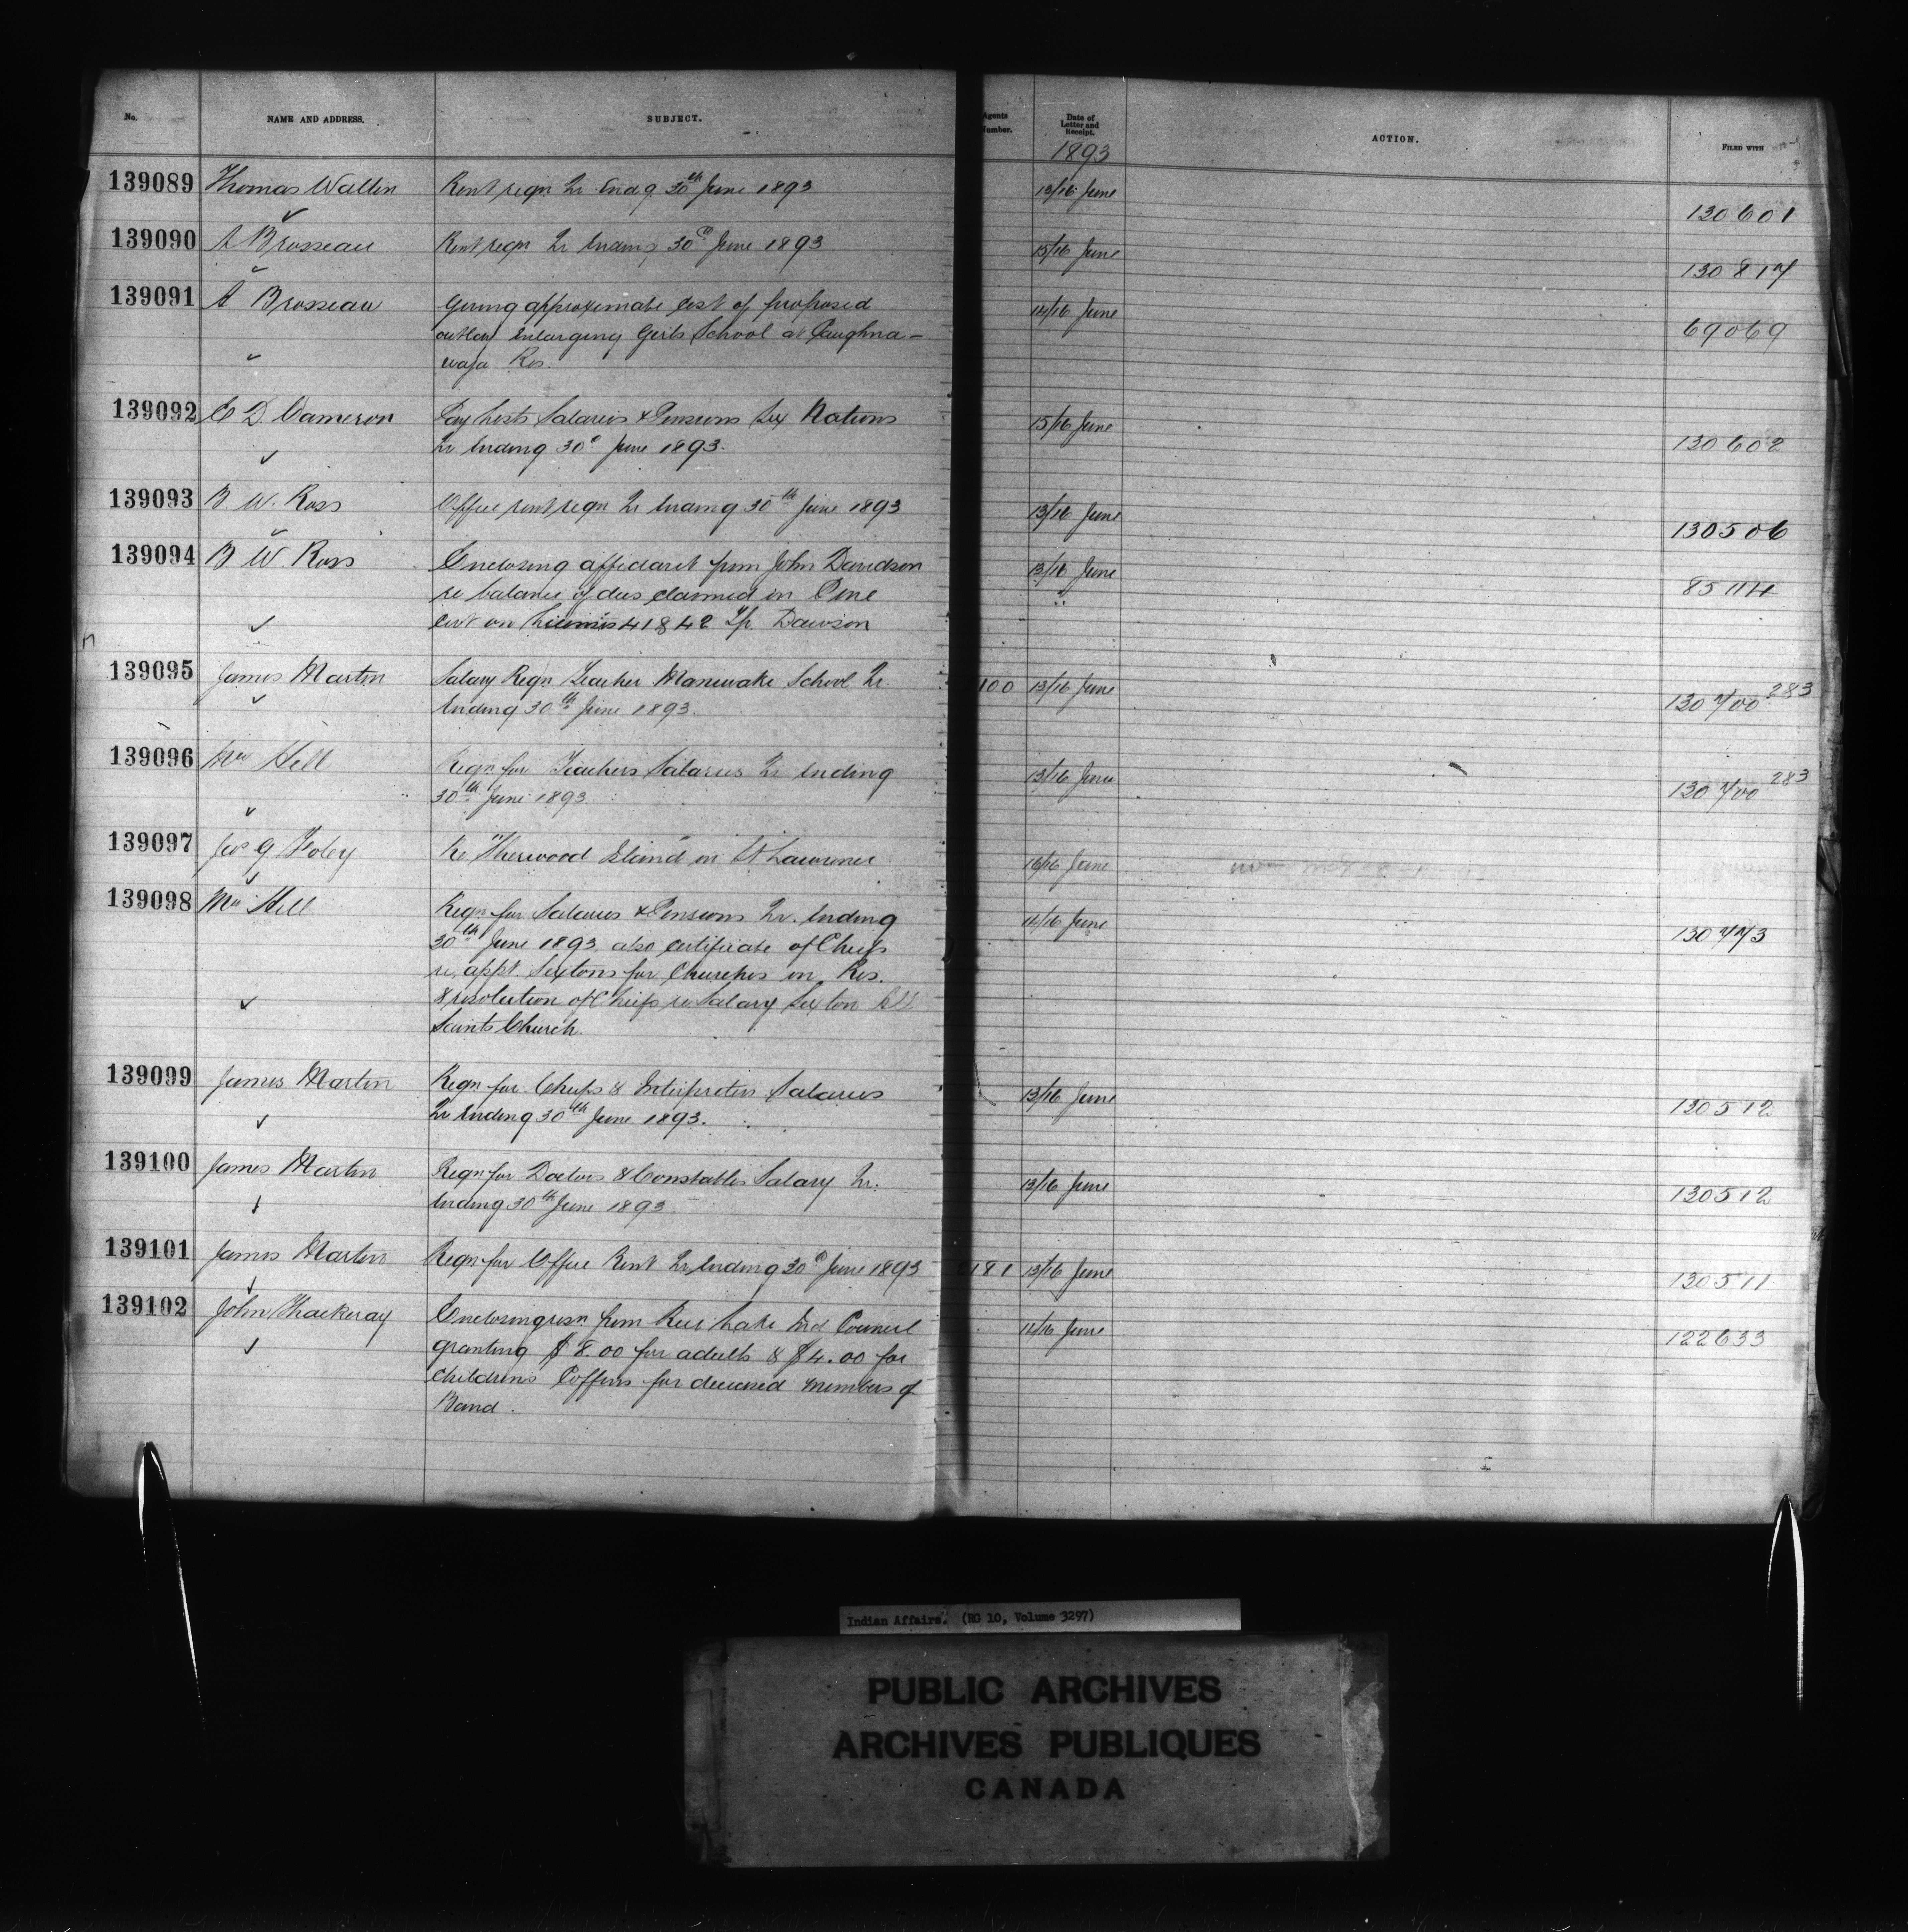 No. NAME AND ADDRESS. SUBJECT. Agents Number. Date of Letter and Receipt. ACTION. FILED WITH
1893
139089 Thomas Wallin Rent reqn. Qr. Endg. 30th June 1893 13/16 June 130601
139090 A Brosseau Rent reqn Qr Ending 30th June 1893 15/16 June 130817
139091 A Brosseau Giving approximate cost of proposed 14/16 June 69069
outlay enlarging Girls School at Caughna-
waga Res.
139092 E D. Cameron Pay Lists Salaries & Pensions Six Nations 15/16 June 130602
Qr Ending 30th June 1893.
139093 B. W. Ross Office rent reqn Qr Ending 30th June 1893 13/16 June 130506
139094 B. W. Ross Enclosing affidavit from John Davidson 13/16 June
re balance of dues claimed on Pine
cut on Licenses 41 & 42 Tp. Dawson
139095 James Martin Salary Reqn Teacher Maniwake School Qr. 100 13/16 June 130700 283
Ending 30th June 1893.
139096 Wm Hill Reqn for Teachers Salaries Qr Ending 13/16 June 130700 283
30th June 1893.
139097 Jos G Foley Re "Sherwood Island" in St Lawrence 16/16 June
139098 Wm Hill Reqn for Salaries & Pensions Qr. Ending 14/16 June 130773
30th June 1893. also certificate of Chiefs
re. appt. Sextons for Churches on Res.
& resolution of Chiefs re. Salary Sexton All
Saints Church.
139099 James Martin Reqn for Chiefs & Interpreters Salaries 13/16 June 130512
Qr Ending 30th June 1893.
139100 James Martin Reqn for Doctors & Constables Salary Qr. 13/16 June 130512
Ending 30th June 1893
139101 James Martin Reqn for Office Rent Qr Ending 30th June 1893 2181 13/16 June 130511
139102 John Thackeray Enclosing resn. from Rice Lake Ind Council 14/16 June 122633
granting $8.00 for adults & $4.00 for
Childrens Coffins for deceased members of
Band.
Indian Affairs. (RG 10, Volume 3297)
PUBLIC ARCHIVES
ARCHIVES PUBLIQUES
CANADA